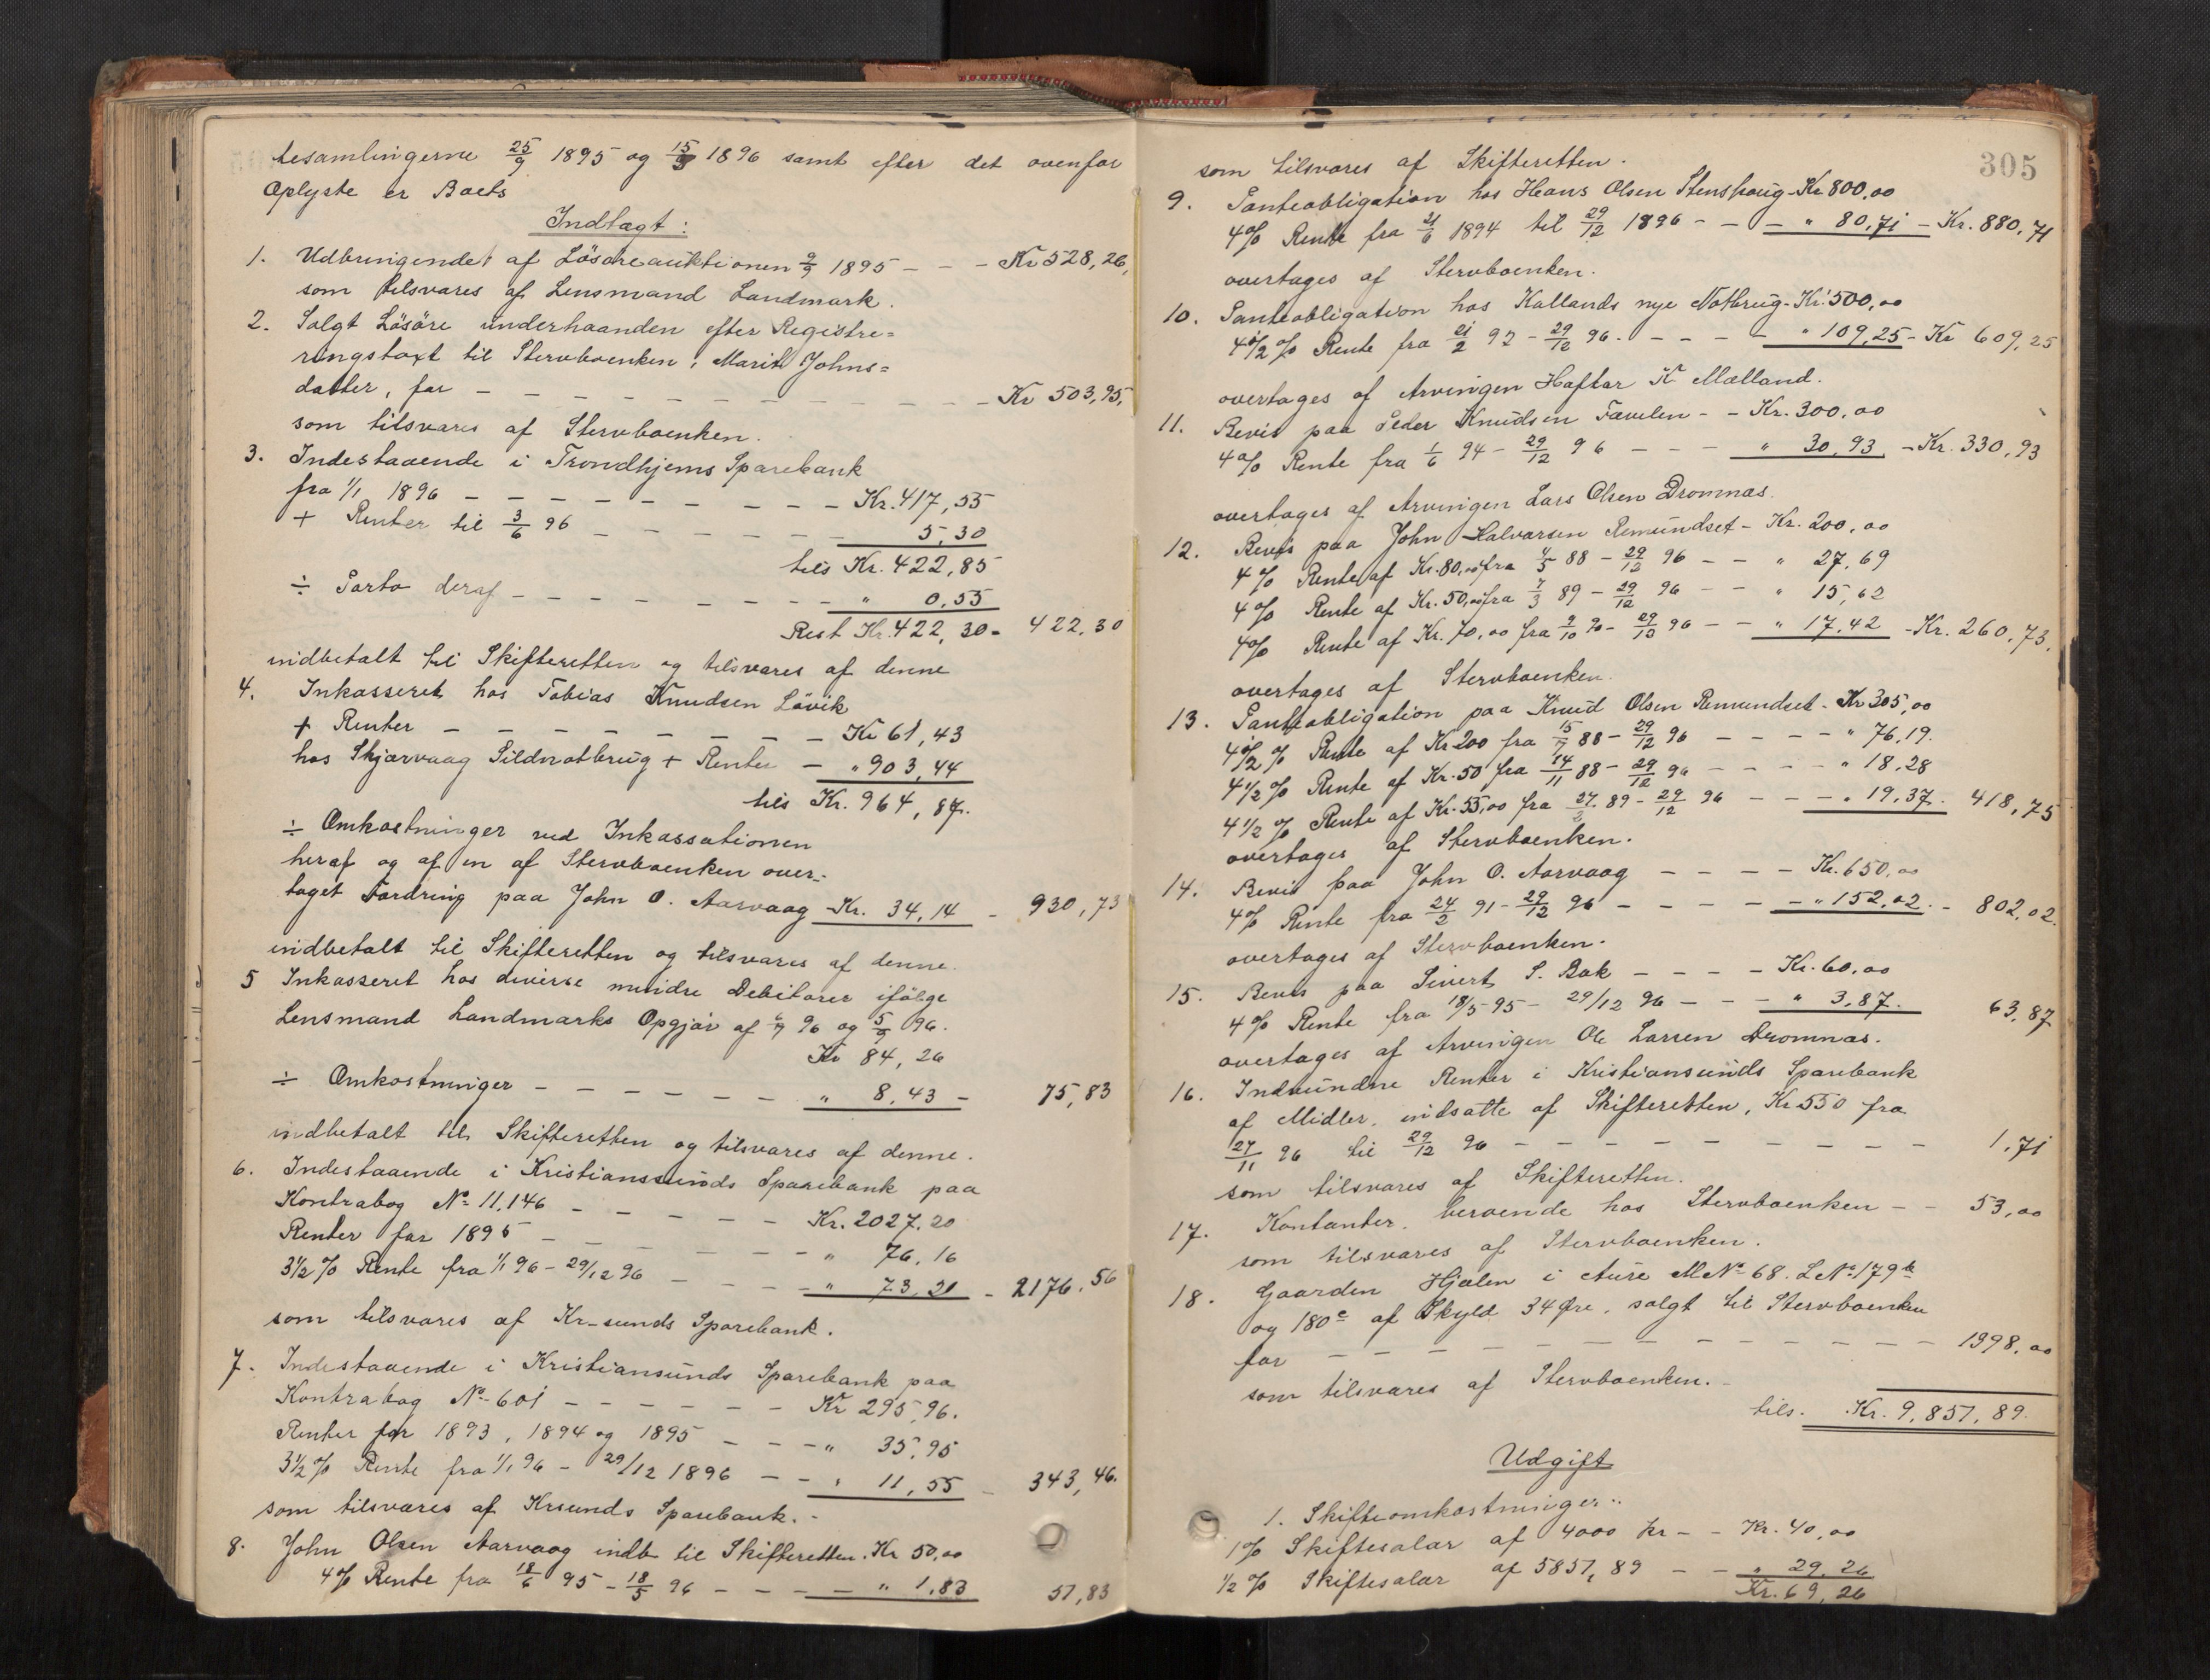 tesamlingerne 25/9 1895 og 15/9 1896 samt efter det ovenfor
Oplyste er Boets
Indtægt:
1. Udbringendet af Løsøreauktionen 9/9 1895 - - - Kr 528,26,
som tilsvares af Lensmand Landmark.
2. Solgt Løsøre underhaanden efter Registre=
ringstaxt til Stervboenken, Marit Johns=
datter, for - - - - - - - - - - - - Kr 503,95,
som tilsvares af Stervboenken.
3. Indestaaende i Trondhjems Sparebank
fra 1/1 1896 - - - - - - - - - Kr. 417,55
+ Renter til 3/6 96 - - - - - - - 5,30
tils Kr. 422,85
÷ Porto deraf - - - - - - - - " 0,55
Rest Kr. 422,30 - 422,30
indbetalt til Skifteretten og tilsvares af denne
4. Inkasseret hos Tobias Knudsen Løvik
+ Renter - - - - - - - - Kr 61,43
hos Skjærvaag Sildnotbrug + Renter - " 903,44
tils Kr. 964,87.
÷ Omkostninger ved Inkassationen
heraf og af en af Stervboenken over-
taget Fordring paa John O. Aarvaag - Kr. 34,14 - 930,73
indbetalt til Skifteretten og tilsvares af denne.
5 Inkasseret hos diverse mindre Debitorer ifølge
Lensmand Landmarks Opgjør af 6/7 96 og 5/9 96.
Kr 84,26
÷ Omkostninger - - - - - - " 8,43 - 75,83
indbetalt til Skifteretten og tilsvares af denne.
6. Indestaaende i Kristianssunds Sparebank paa
Kontrabog No 11.146 - - - - - Kr. 2027.20
Renter for 1895 - - - - - - - " 76,16
3 1/2 % Rente fra 1/1 96 - 29/12 96 - - - - " 73,20 - 2176.56
som tilsvares af Kr-sunds Sparebank.
7. Indestaaende i Kristiansunds Sparebank paa
Kontrabog No 601 - - - - - - Kr 295,96.
Renter for 1893, 1894 og 1895 - - - " 35,95
3 1/2 % Rente fra 1/1 96 - 29/12 1896 - - " 11,55 - 343,46.
som tilsvares af Krsunds Sparebank. -
8. John Olsen Aarvaag indb. til Skifteretten. Kr 50,00
4 % Rente fra 18/6 95 - 18/5 96 - - - - " 1,83 51,83
305
som tilsvares af Skifteretten.
9. Panteobligation hos Hans Olsen Stenshaug - Kr 800,00
4 % Rente fra 21/6 1894 til 29/12 1896 - - - " 80,71 - Kr. 880,71
overtages af Stervboenken.
10. Panteobligation hos Kallands nye Notbrug - Kr. 500,00
4 1/2 % Rente fra 21/2 92 - 29/12 96. - - - - " 109,25 - Kr 609,25
overtages af Arvingen Haftor K Mælland.
11. Bevis paa Peder Knudsen Favelen - - Kr. 300,00
4 % Rente fra 1/6 94 - 29/12 96 - - - " 30,93 - Kr. 330,93
overtages af Arvingen Lars Olsen Dromnæs.
12. Bevis paa John Halvorsen Remundset - Kr. 200,00
4 % Rente af Kr. 80,00 fra 4/5 88 - 29/12 96 - - " 27,69
4 % Rente af Kr. 50,00 fra 7/3 89 - 29/12 96 - - " 15,62
4 % Rente af Kr. 70,00 fra 9/10 90 - 29/12 96 - - " 17,42 - Kr. 260,73,
overtages af Stervboenken.
13. Panteobligation paa Knud Olsen Remundset - Kr 305,00
4 1/2 % Rente af Kr 200 fra 15/7 88 - 29/12 96 - - - - " 76,19.
4 1/2 % Rente af Kr. 50 fra 14/11 88 - 29/12 96 - - - - " 18,28
4 1/2 % Rente af Kr. 55,00 fra 27/2 89 - 29/12 96 - - - " 19,37. 418,75
overtages af Stervboenken.
14. Bevis paa John O. Aarvaag - - - - Kr. 650,00
4 % Rente fra 24/2 91 - 29/12 96 - - - - - " 152,02. - 802,02.
overtages af Stervboenken.
15. Bevis paa Sivert S. Bak - - - - Kr. 60,00
4 % Rente fra 18/5 95 - 29/12 96 - - - " 3,87. 63,87
overtages af Arvingen Ole Larsen Dromnæs.
16. Indvundne Renter i Kristiansunds Sparebank
af Midler, indsatte af Skifteretten, Kr. 550 fra
27/11 96 til 29/12 96 - - - - - - - - - - 1,71
som tilsvares af Skifteretten.
17. Kontanter beroende hos Stervboenken - - 53,00
som tilsvares af Stervboenken.
18. Gaarden Hjælen i Aure M No 68. L No 179 b
og 180 c af Skyld 34 Øre, solgt til Stervboenken
for - - - - - - - - - - - - 1998,00
som tilsvares af Stervboenken. -
tils. Kr. 9,851,89.
Udgift
1. Skifteomkostninger:
1 % Skiftesalær af 4000 Kr - - Kr. 40,00
1/2 % Skiftesalær af 5851,89 - - " 29,26
Kr. 69,26